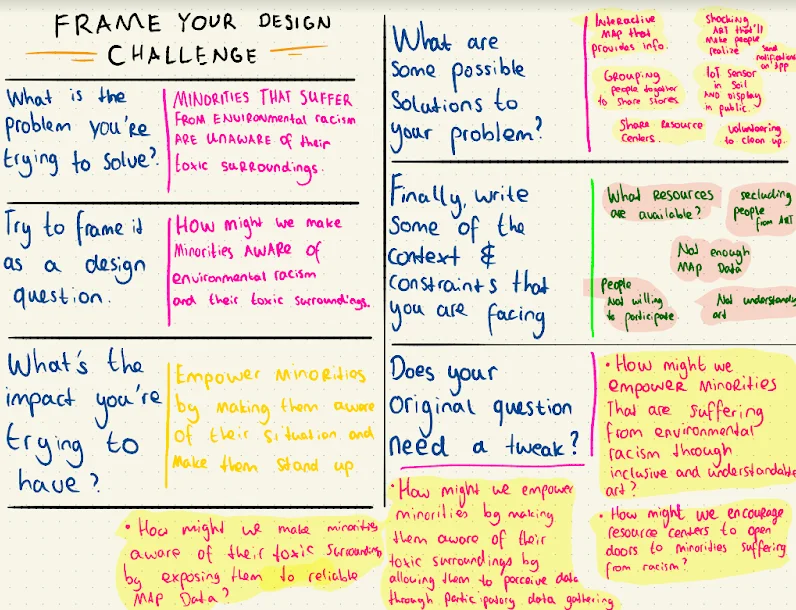 FRAME YOUR DESIGN
CHALLENGE
What is the
problem you're
trying to solve?
MINORITIES THAT SUFFER
FROM ENVIRONmental racism
ARE UNAWARE of their
toxic surroundings.
Try to frame it
as a design
question.
How might we make
Minorities AWARE of
environmental racism
and their toxic surroundings.
What's the
impact you're
trying to
have?
Empower Minorities
by making them aware
of their situation and
Make them Stand up
• How might we make minorities
aware of their toxic surroundings
by exposing them to reliable
MAP Data?
What are
some possible
Solutions to
your problem?
Interactive
MAP that
provides info.
Shocking
ART that'll
Make people
realize
Send
notifications
on App
Grouping
people together
to share stories
IoT sensor
in Soil
AND Display
in public.
Share Resource
Centers.
volunteering
to clean up.
Finally, write
Some of the
context &
constraints that
you are facing
What Resources
are available?
secluding
people
from ART
Not enough
MAP Data
people
Not willing
to participate
Not understanding
art
Does your
original question
need a tweak?
• How might we
empower Minorities
That are suffering
from environmental
racism through
inclusive and understandable
art?
• How might we empower
minorities by making
them aware of their
toxic surroundings by
allowing them to perceive data
through participatory data gathering
• How might we encourage
resource centers to open
doors to minorities suffering
from racism?